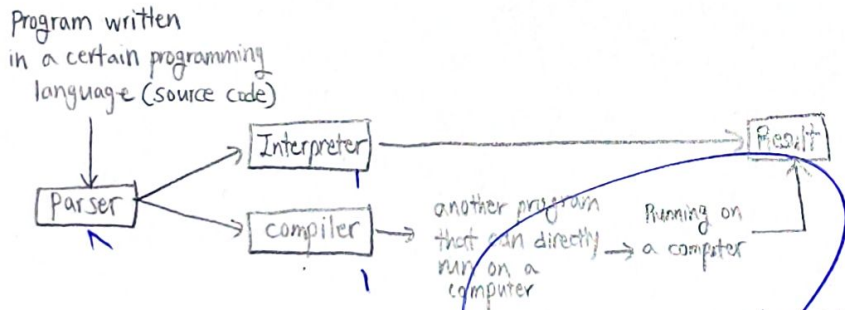 Program written
in a certain programming
language (source code)
Interpreter
Result
Parser
compiler
another program
that can directly
run on a
computer
Running on
a computer